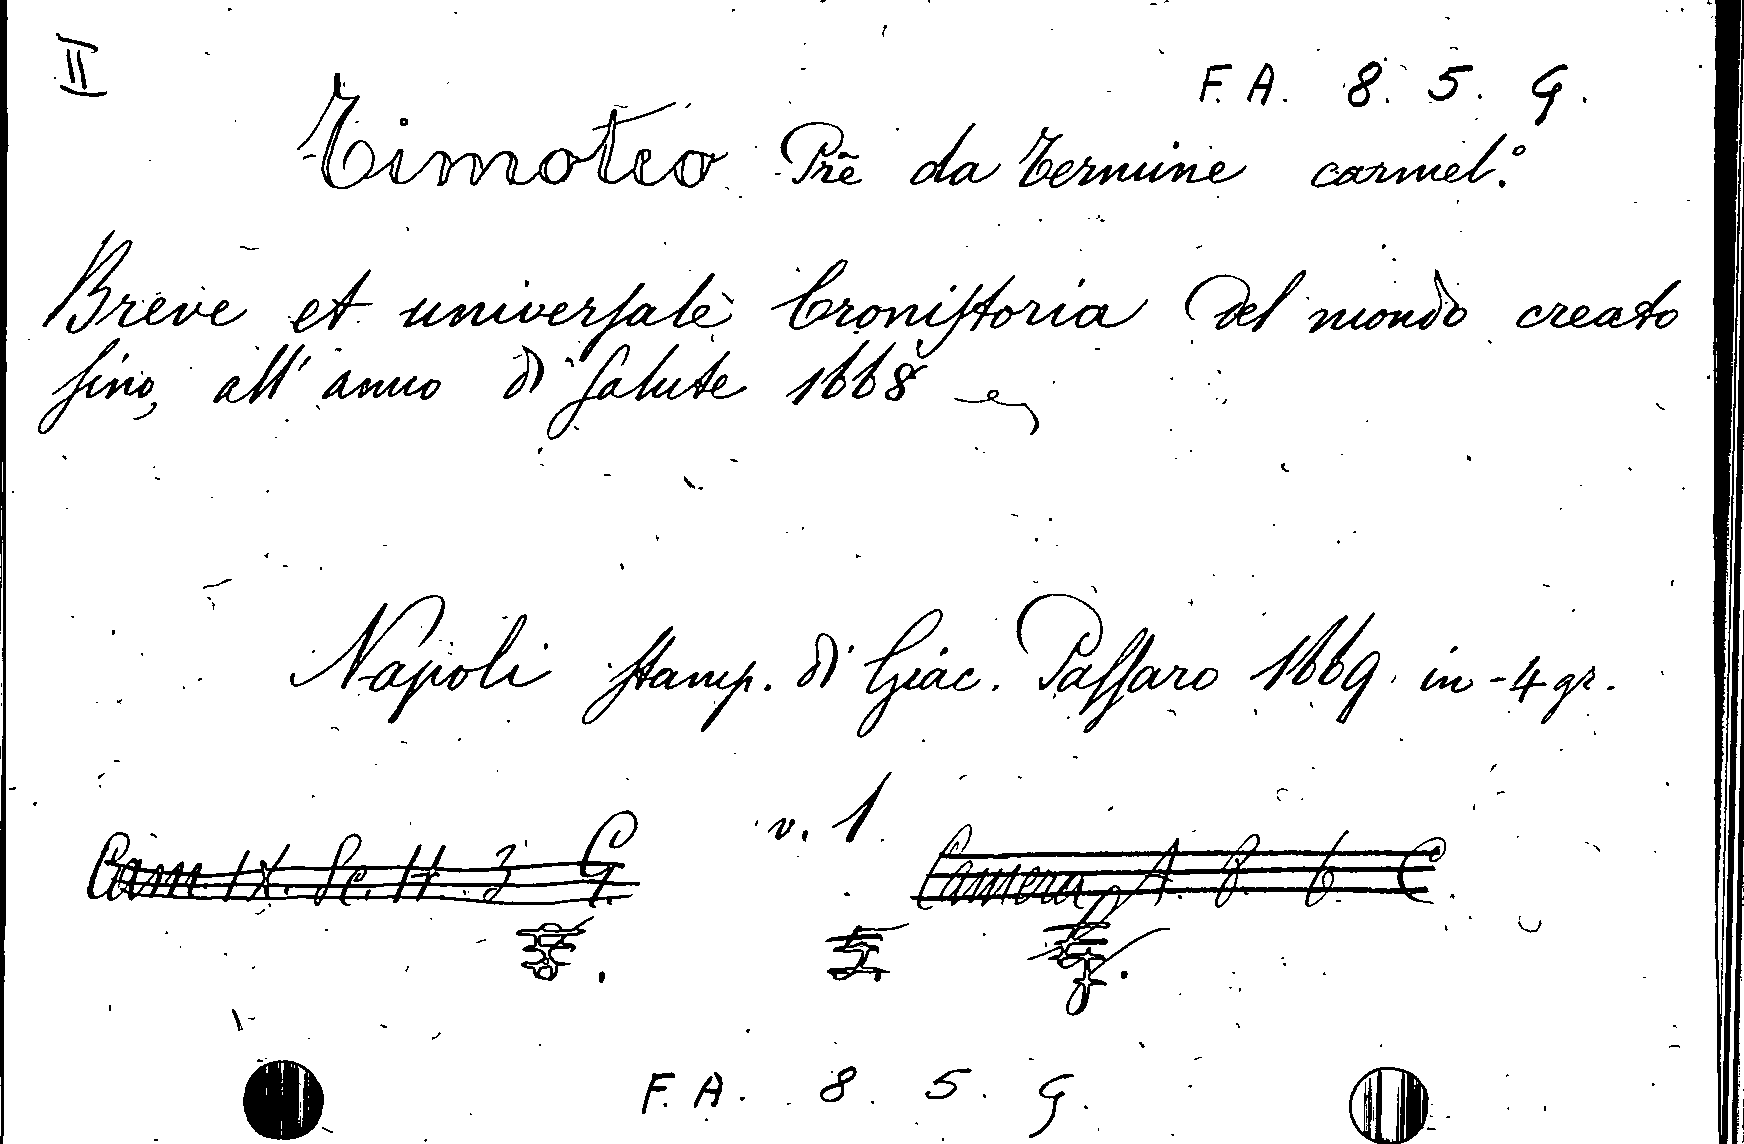 II
F. A. 8. 5. G.
Timoteo Prē da Termine carmel.°
Breve et universale Cronistoria del mondo creato
fino, all' anno di Salute 1668
Napoli stamp. di Giac. Passaro 1669. in-4 gr.
v. 1
Cam. IX. Sc. H. 3 G.
Camera A. 8. 6. C.
F. A. 8. 5. G.